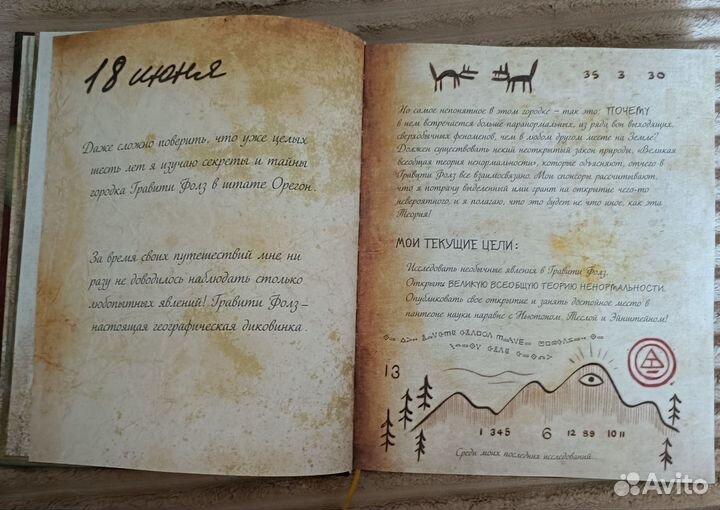 18 июня
Даже сложно поверить, что уже целых
шесть лет я изучаю секреты и тайны
городка Гравити Фолз в штате Орегон.
За время своих путешествий мне ни
разу не доводилось наблюдать столько
любопытных явлений! Гравити Фолз–
настоящая географическая диковинка.
35 3 30
Но самое непонятное в этом городке – так это: ПОЧЕМУ
в нем встречается больше паранормальных, из ряда вон выходящих,
сверхобычных феноменов, чем в любом другом месте на Земле?
Должен существовать некий неоткрытый закон природы, «Великая
всеобщая теория ненормальности», которые объясняют, отчего в
Гравити Фолз все взаимосвязано. Мои спонсоры рассчитывают,
что я потрачу выделенный ими грант на открытие чего-то
невероятного, и я полагаю, что это будет не что иное, как эта
Теория!
МОИ ТЕКУЩИЕ ЦЕЛИ:
Исследовать необычные явления в Гравити Фолз.
Открыть ВЕЛИКУЮ ВСЕОБЩУЮ ТЕОРИЮ НЕНОРМАЛЬНОСТИ.
Опубликовать свое открытие и занять достойное место в
пантеоне науки наравне с Ньютоном, Теслой и Эйнштейном!
13
1 345 6 12 89 10 11
Среди моих последних исследований...
Avito